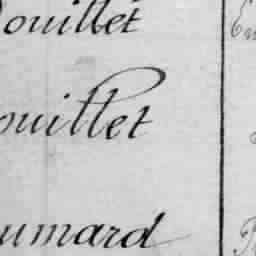 ouillet
ouillet
umard